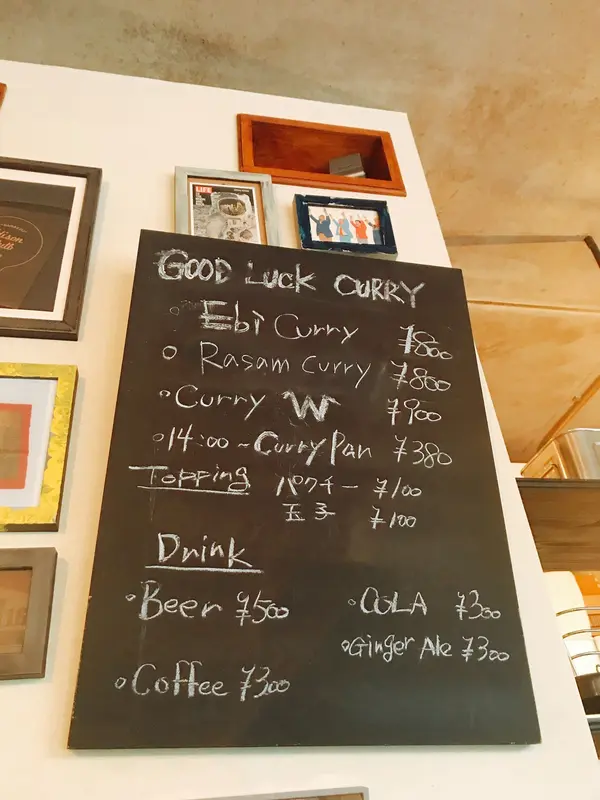 LIFE
GOOD LUCK CURRY
Ebi Curry ¥800
Rasam curry ¥800
Curry W ¥900
14:00~Curry Pan ¥380
Topping パクチー ¥100
玉子 ¥100
Drink
Beer ¥500
COLA ¥300
Ginger Ale ¥300
Coffee ¥300